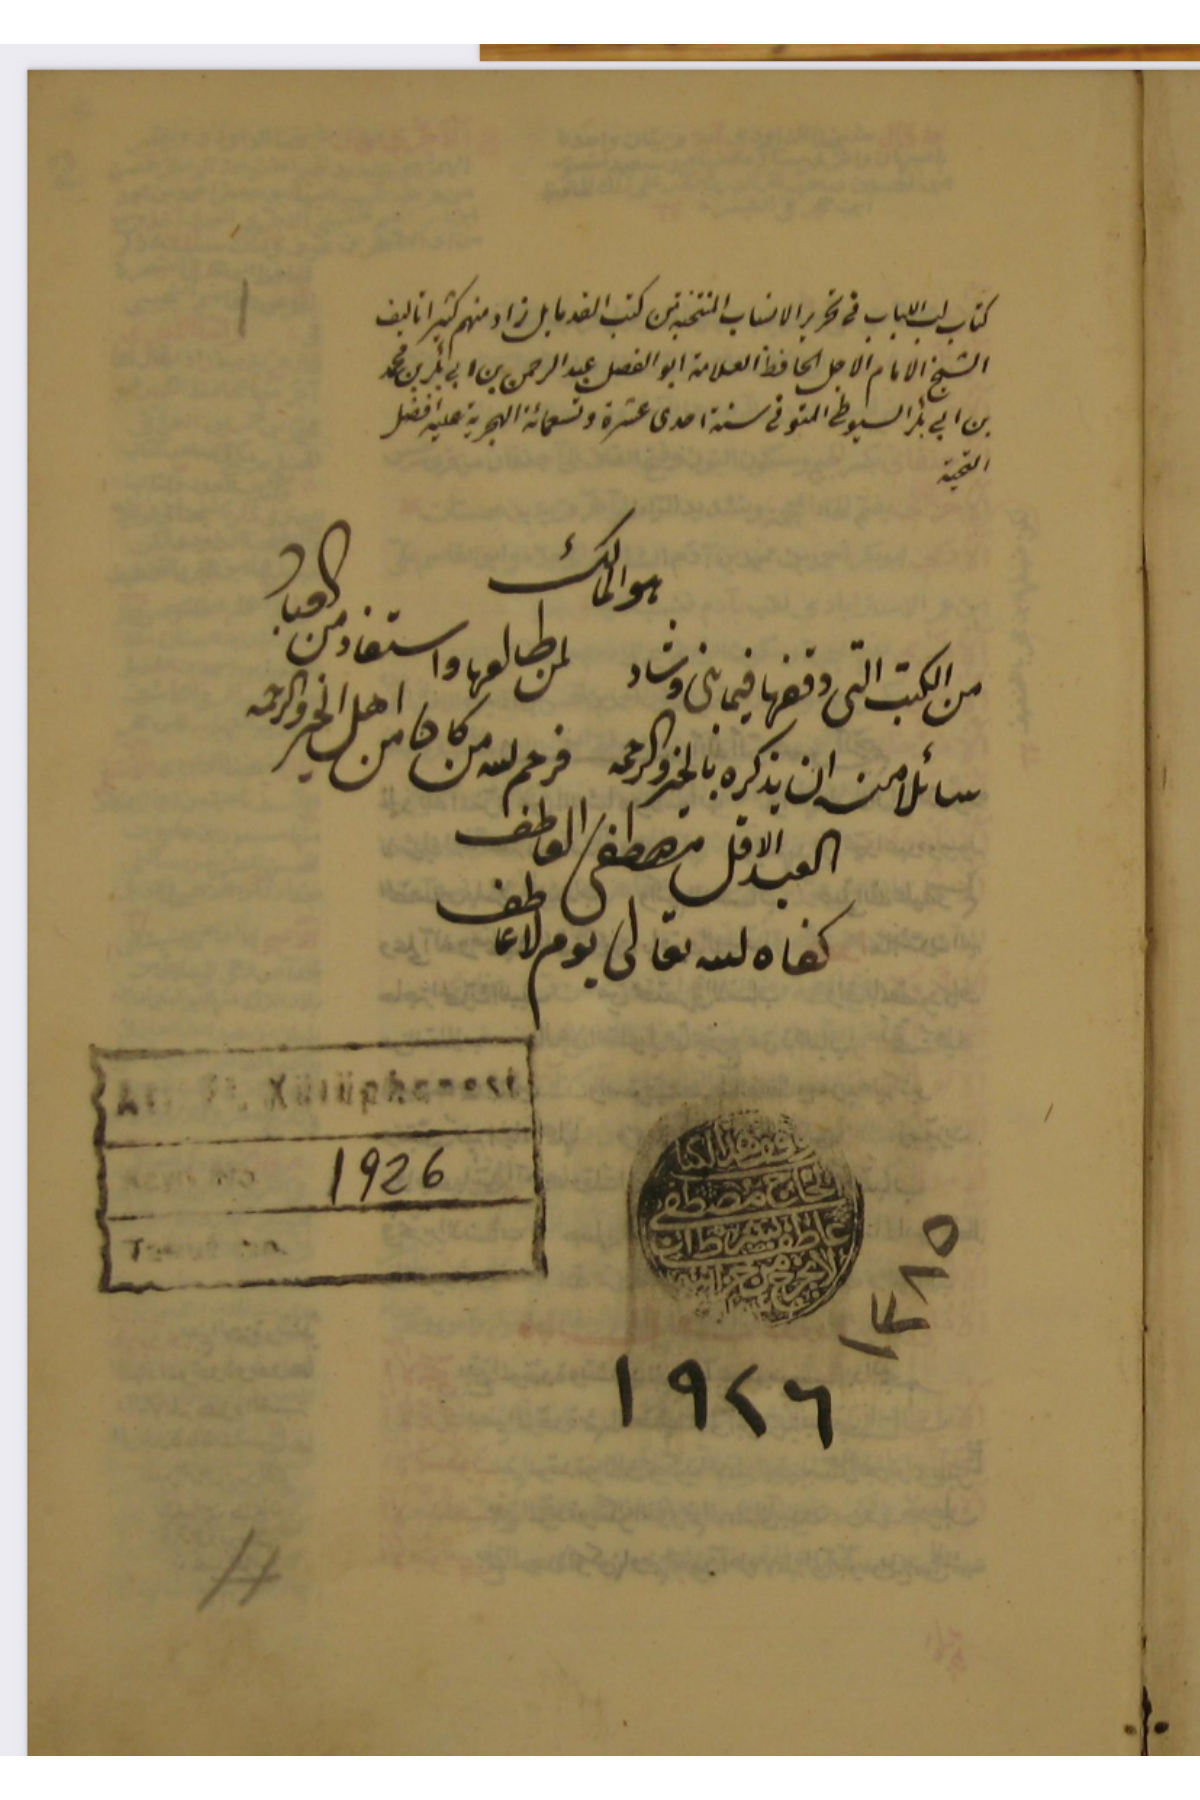 كتاب لب اللباب في تحرير الانساب المنتخبة من كتب القدما بل زاد منهم كثيرا تاليف
الشيخ الامام الاجل الحافظ العلامة ابو الفضل عبد الرحمن بن ابي بكر بن محمد
بن ابي بكر السيوطي المتوفي سنة احدى عشرة وتسعمائة الهجرية عليه افضل
التحية
هو المالك
من الكتب التى وقفها فيما بنى وشاد لمن طالعها واستفاد من العباد
سائلا منه ان يذكره بالخير والرحمه فرحم الله من كان من اهل الخير والرحمه
العبد الاقل مصطفى العاطف
كفاه الله تعالى يوم لا عاطف
1
Kütüphanesi
1926
وقف هذا الكتاب
الحاج مصطفى
عاطف بشرط ان
لا يخرج من خزانته
١٣٨٥
١٩٢٦